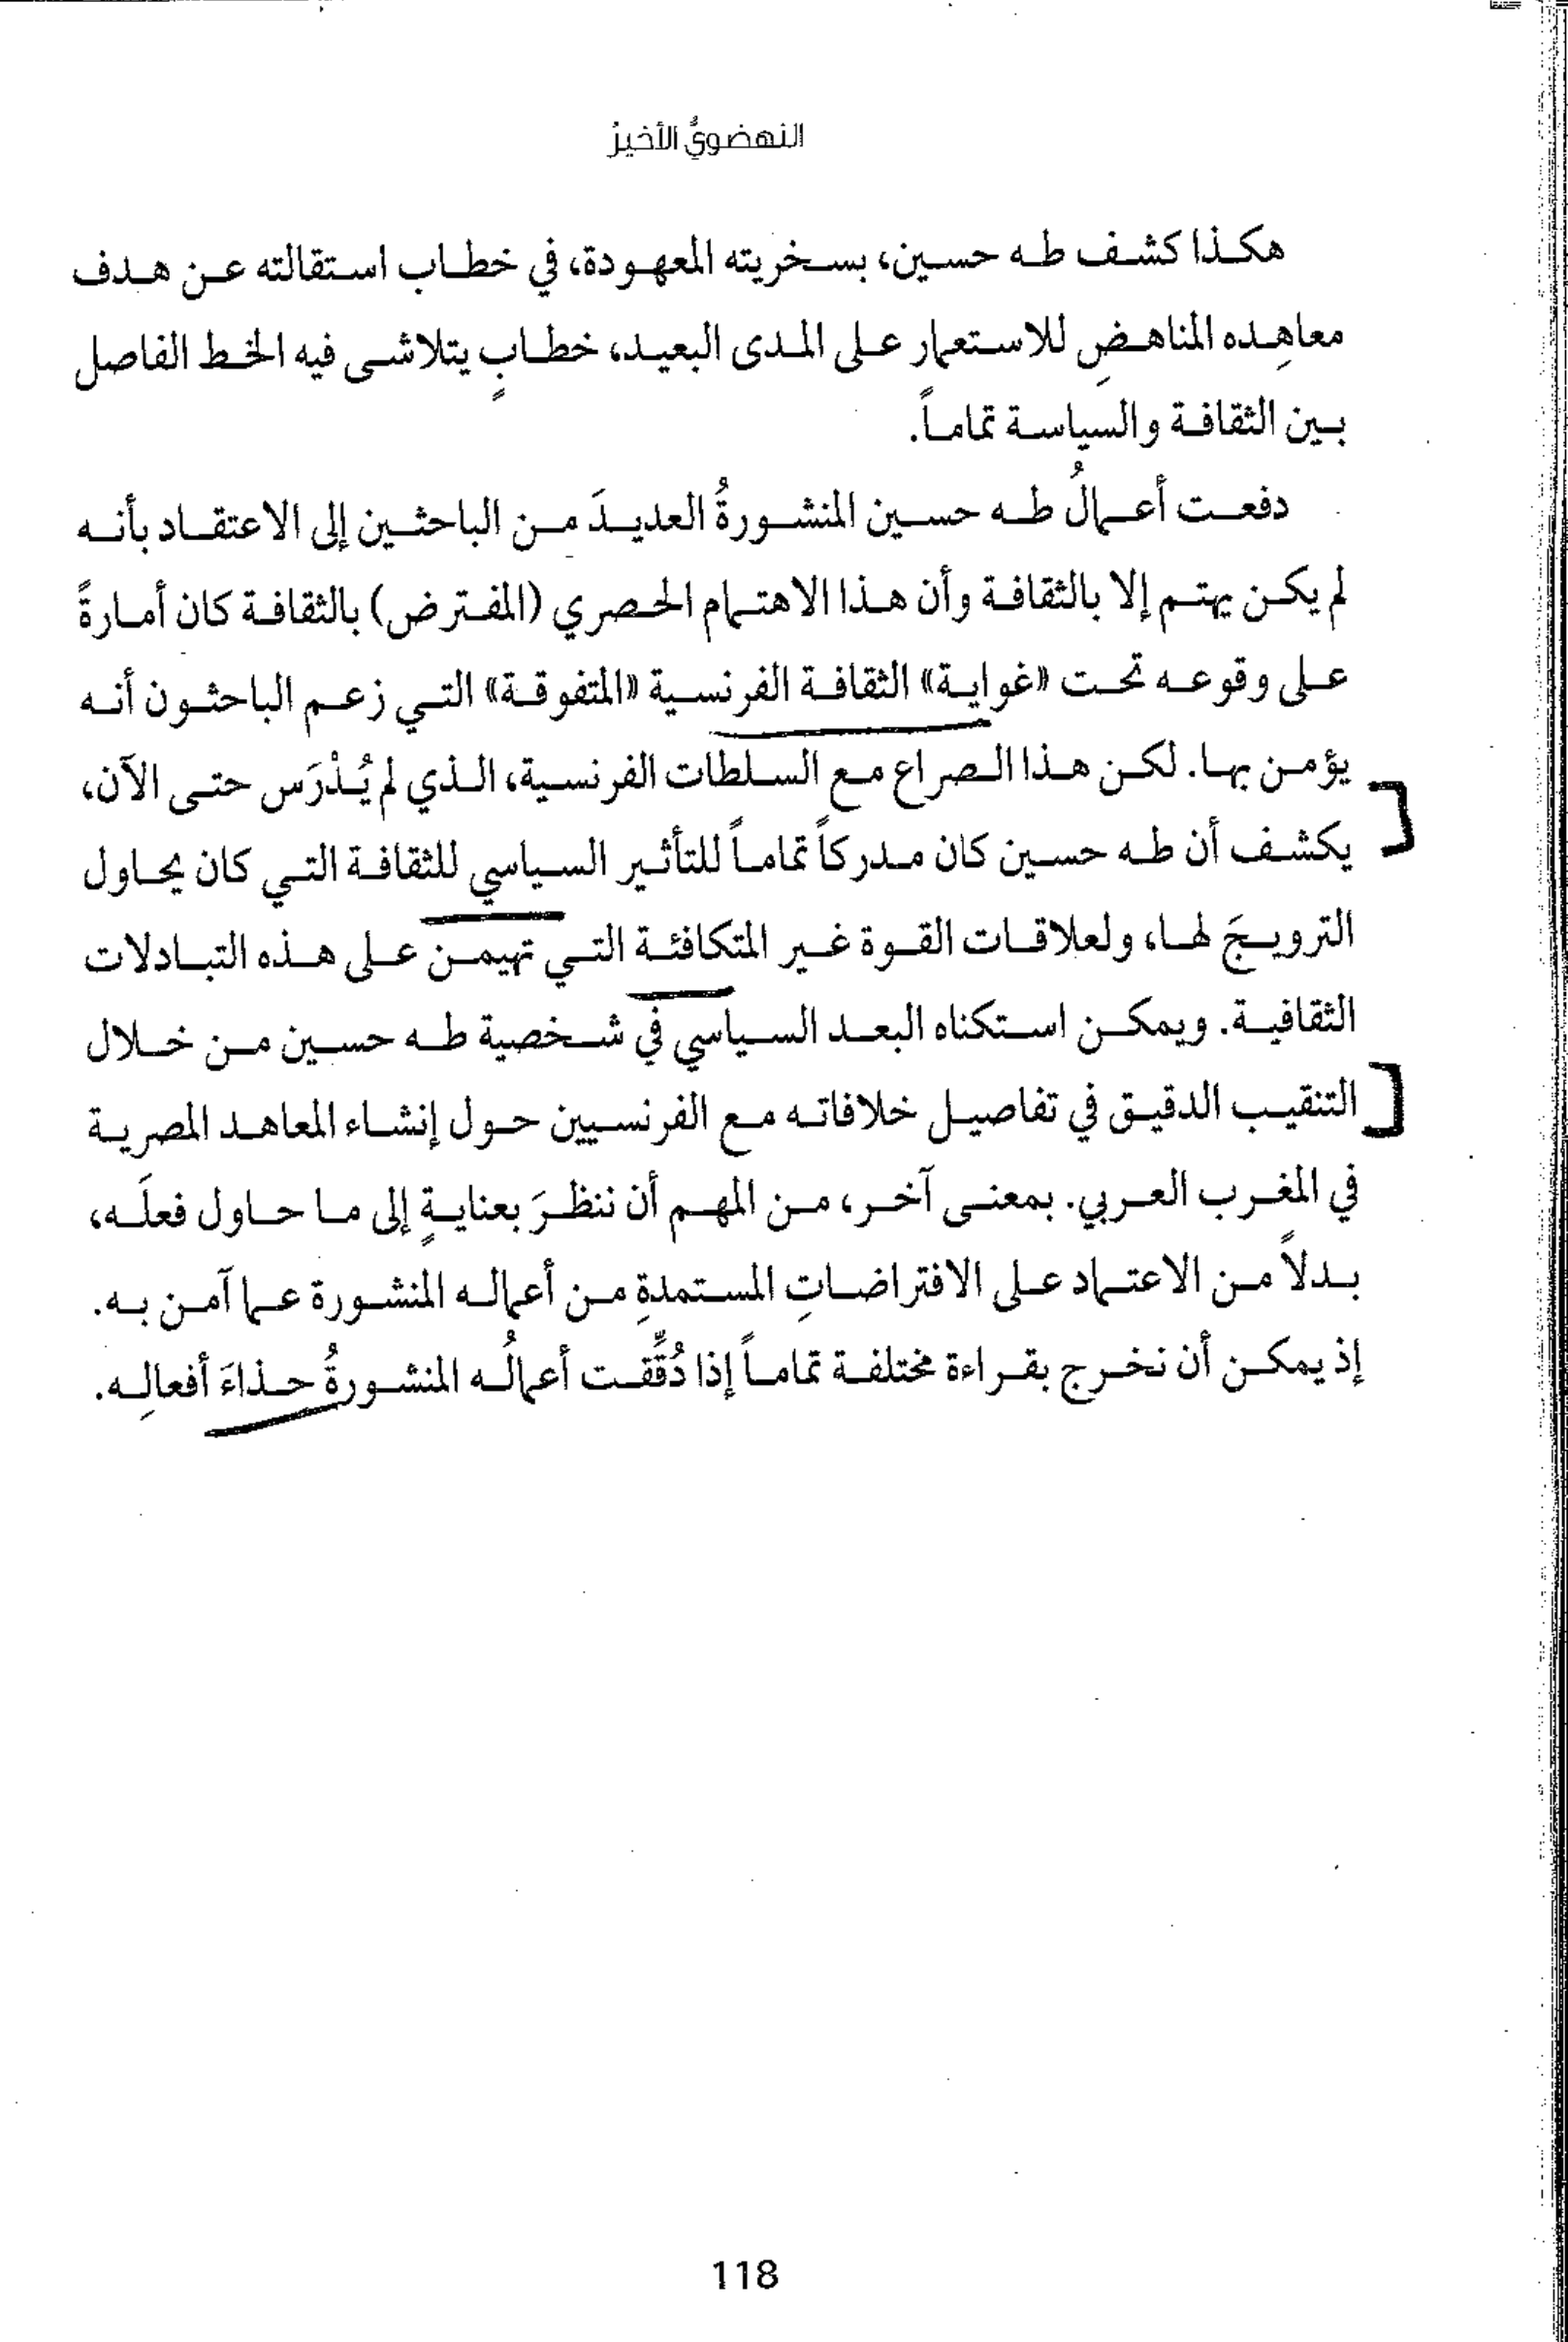 النهضويُّ الأخيرُ
هكذا كشف طه حسين، بسخريته المعهودة، في خطاب استقالته عن هدف
معاهِده المناهضِ للاستعمار على المدى البعيد، خطابٍ يتلاشى فيه الخط الفاصل
بين الثقافة والسياسة تماماً.
دفعت أعمالُ طه حسين المنشورةُ العديدَ من الباحثين إلى الاعتقاد بأنه
لم يكن يهتم إلا بالثقافة وأن هذا الاهتمام الحصري (المفترض) بالثقافة كان أمارةً
على وقوعه تحت «غواية» الثقافة الفرنسية «المتفوقة» التي زعم الباحثون أنه
يؤمن بها. لكن هذا الصراع مع السلطات الفرنسية، الذي لم يُدْرَس حتى الآن،
يكشف أن طه حسين كان مدركاً تماماً للتأثير السياسي للثقافة التي كان يحاول
الترويجَ لها، ولعلاقات القوة غير المتكافئة التي تهيمن على هذه التبادلات
الثقافية. ويمكن استكناه البعد السياسي في شخصية طه حسين من خلال
التنقيب الدقيق في تفاصيل خلافاته مع الفرنسيين حول إنشاء المعاهد المصرية
في المغرب العربي. بمعنى آخر، من المهم أن ننظرَ بعنايةٍ إلى ما حاول فعلَه،
بدلاً من الاعتماد على الافتراضاتِ المستمدةِ من أعماله المنشورة عما آمن به.
إذ يمكن أن نخرج بقراءة مختلفة تماماً إذا دُقِّقت أعمالُه المنشورةُ حذاءَ أفعالِه.
118